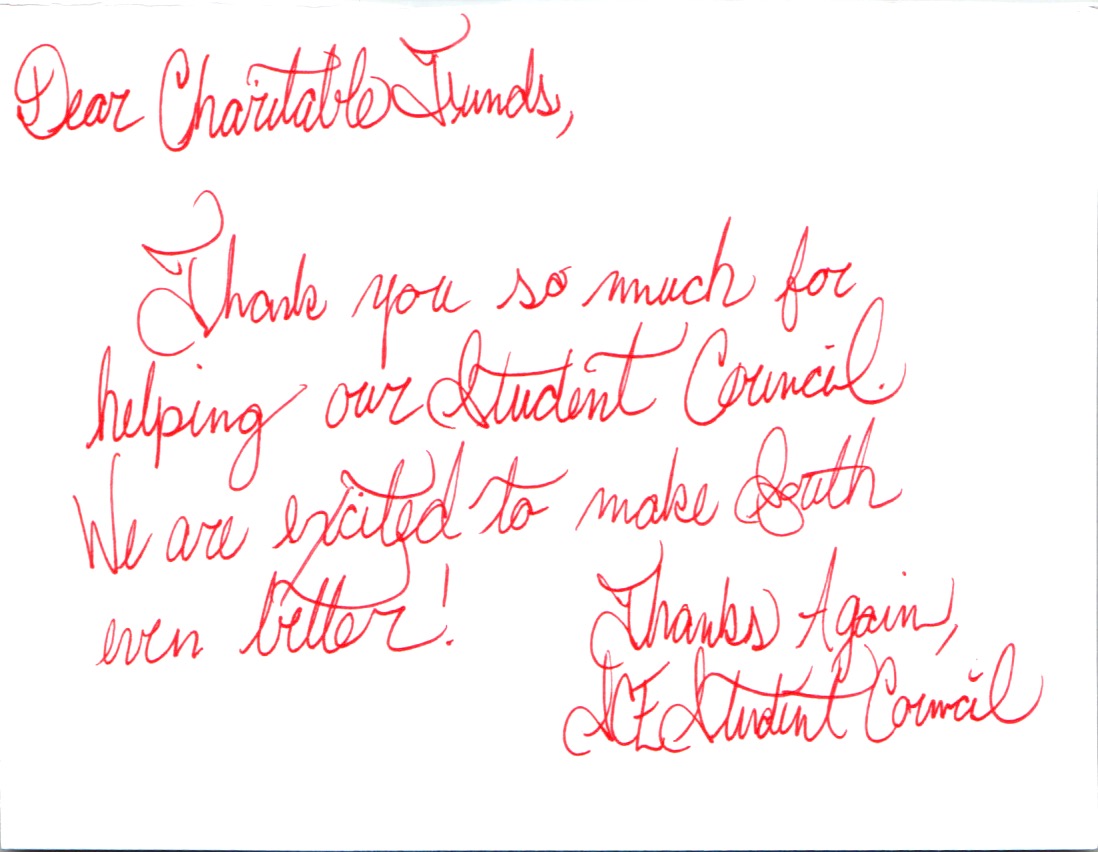 Dear Charitable Funds,
Thank you so much for
helping our Student Council.
We are excited to make South
even better!
Thanks Again,
SCE Student Council